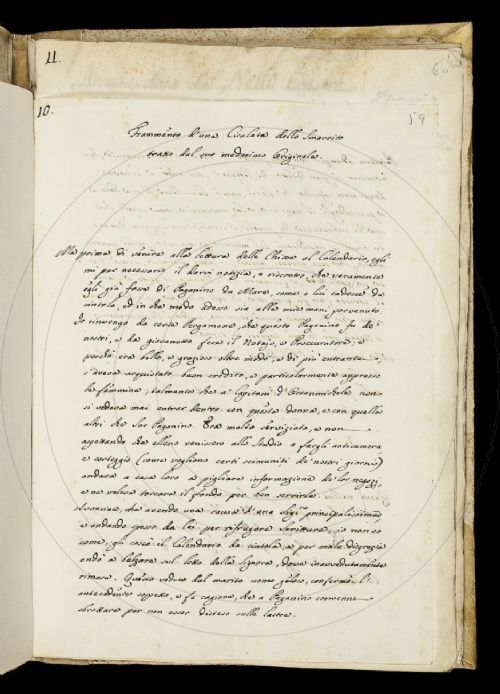 11.
60
59
10.
Frammento d'una Cicalata dello Smarrito
tratto dal suo medesimo Originale.
Ma prima di venire alla lettura delle Chiose al Calendario, egli
mi par necessario il darvi notizia, e riscontro, che veramente
egli già fosse di Paganino da Mare, come a lui cadesse da
cintola, ed in che modo adesso sia alle mie mani pervenuto.
Io rinvengo da certe Pergamene, che questo Paganino fu de'
nostri, e da giovanotto fece il Notajo, e Proccuratore, e
perchè era bello, e grazioso oltre modo, e di più entrante
s'aveva acquistato buon credito, e particolarmente appresso
le femmine, talmente che a' Capitani d'Orsanmichele non
si vedeva mai entrar dentro con questa donna, e con quella
altri che Ser Paganino. Era molto serviziato, e non
aspettando che elleno venissero allo Studio a fargli anticamera,
e corteggio (come vogliono certi scimuniti de' nostri giorni)
andava a casa loro a pigliare informazione de' lor negozi,
e ne voleva toccare il fondo per ben servirle.
che avendo una causa d'una Sig.ra principalissima,
e andando spesso da lei per rifrugare scritture, io non so
come, gli cascò il Calendario da cintola, e per mala disgrazia
andò a balzare sul letto della Signora, dove inavvedutamente
rimase. Questo veduto dal marito uomo geloso, confermò l'
antecedente sospetto, e fu cagione, che a Paganino convenne
sbrattare per non esser disteso sulle lastre.